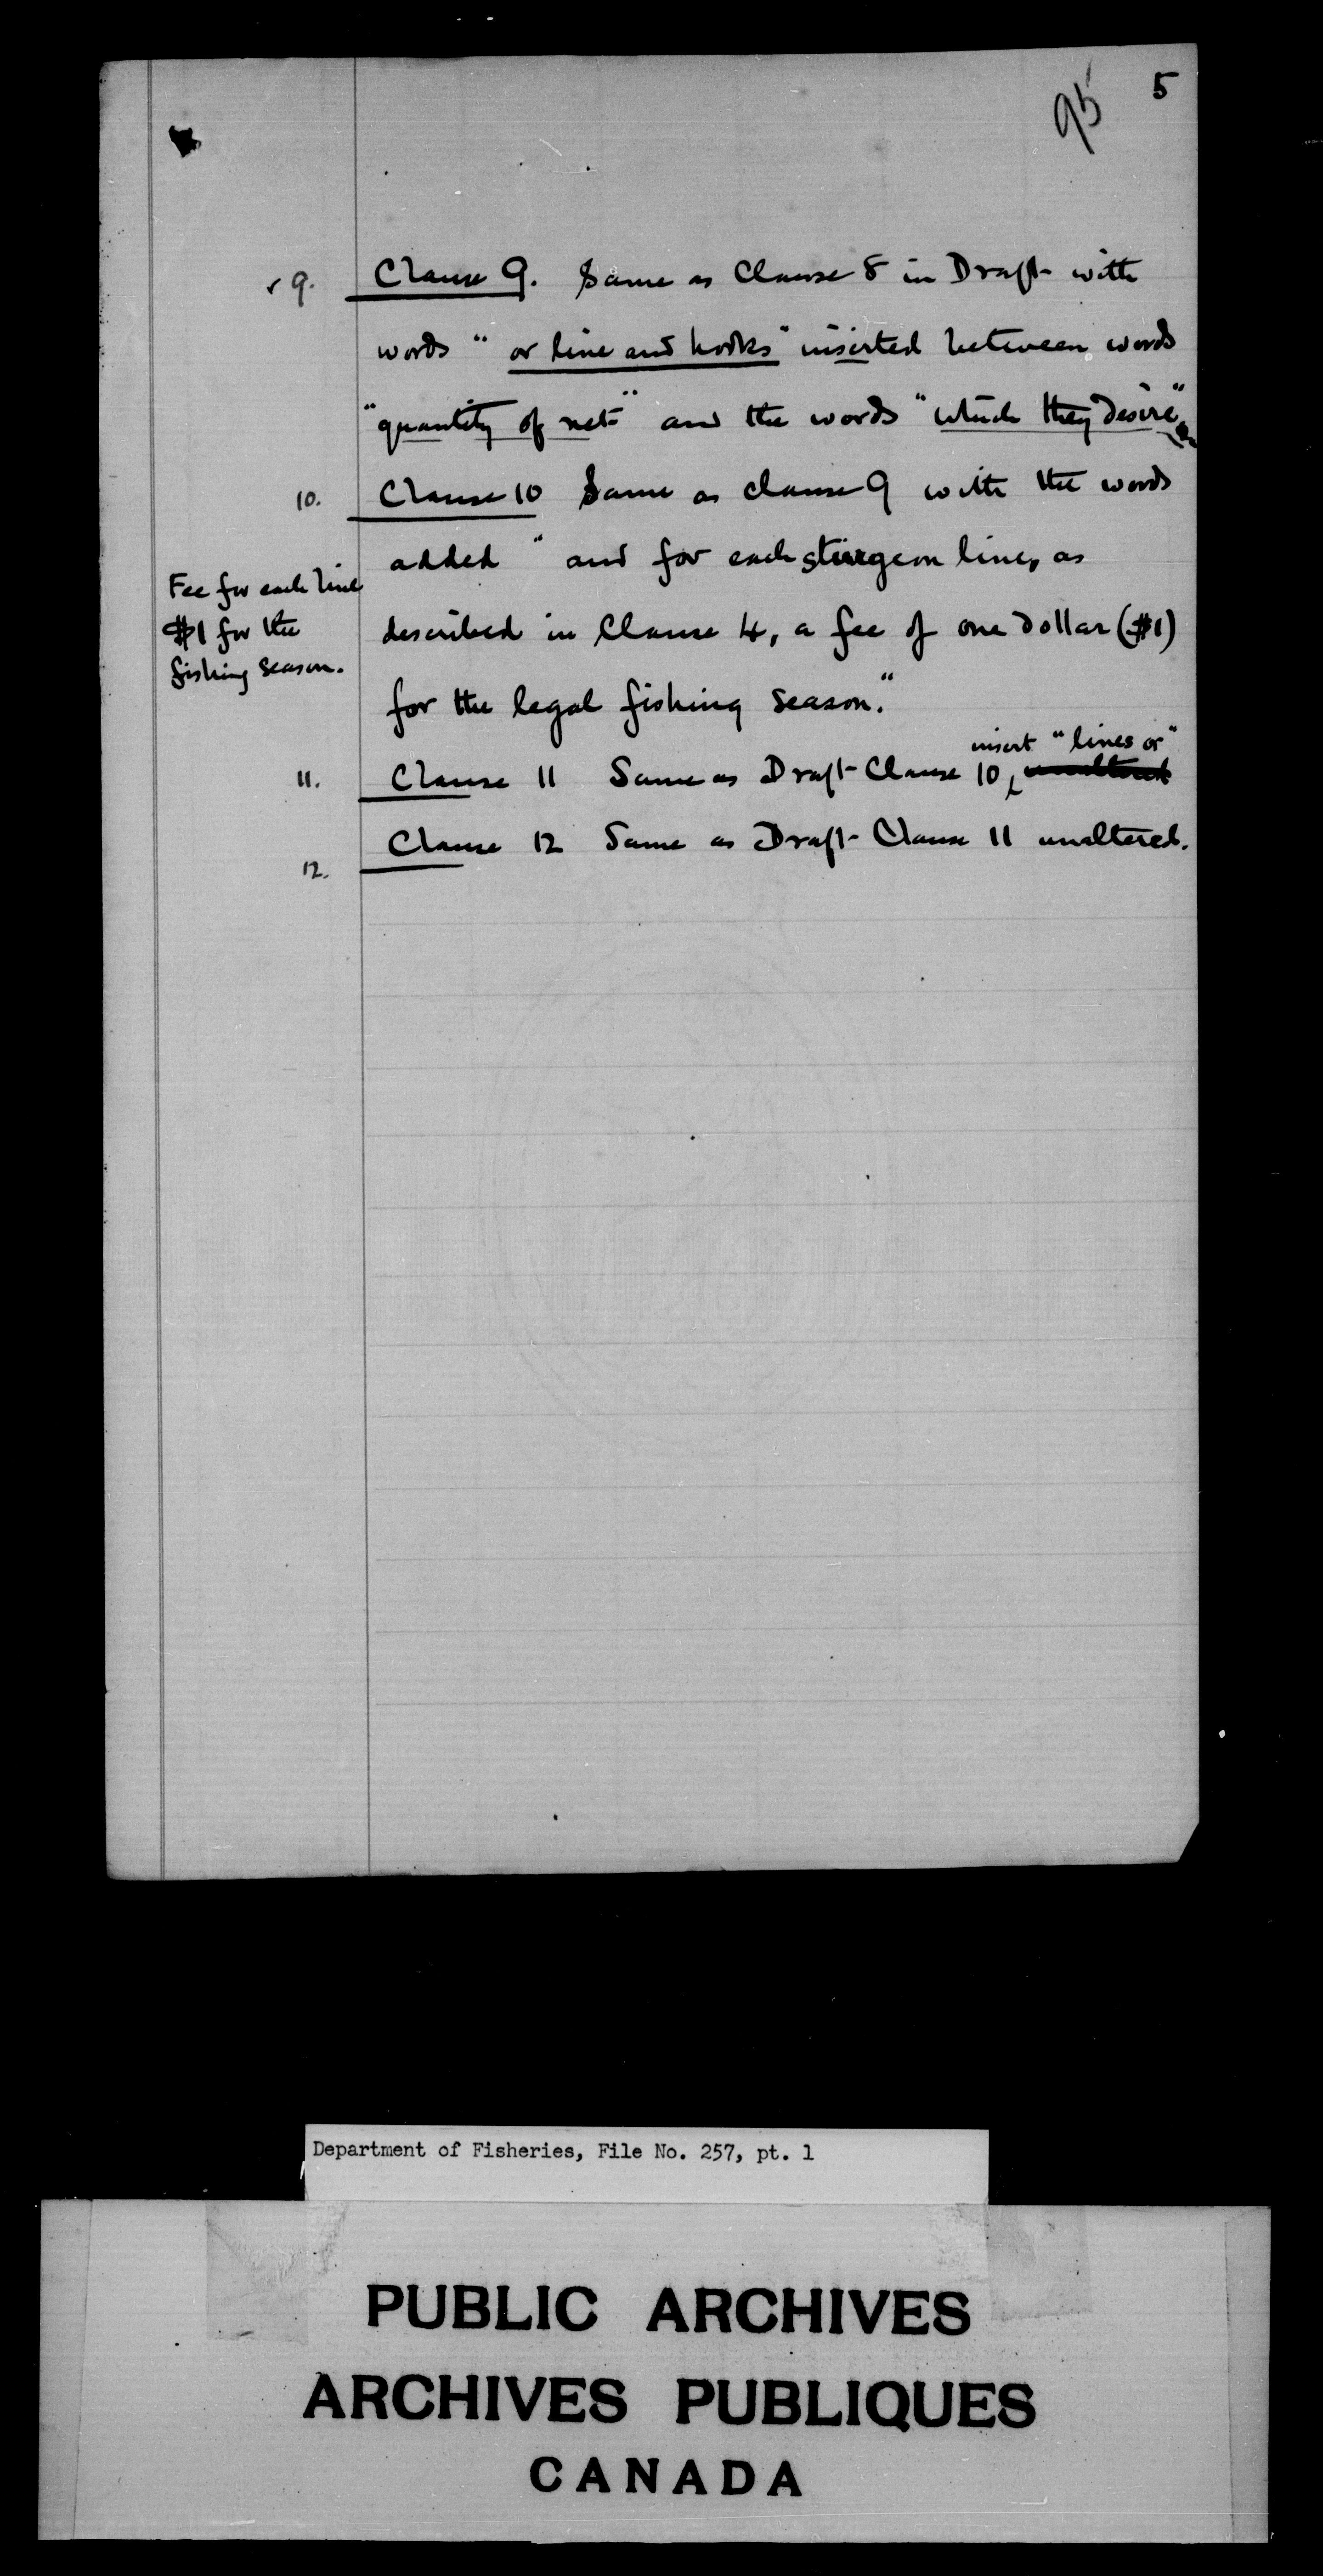 95 5
9. Clause 9. Same as Clause 8 in Draft with
words "or line and hooks" inserted between words
"quantity of net" and the words "which they desire"
10. Clause 10 Same as clause 9 with the words
added "and for each sturgeon line, as
Fee for each line
$1 for the
fishing season.
described in Clause 4, a fee of one dollar ($1)
for the legal fishing season."
insert "lines or"
11. Clause 11 Same as Draft Clause 10, unaltered
12. Clause 12 Same as Draft Clause 11 unaltered.
Department of Fisheries, File No. 257, pt. 1
PUBLIC ARCHIVES
ARCHIVES PUBLIQUES
CANADA